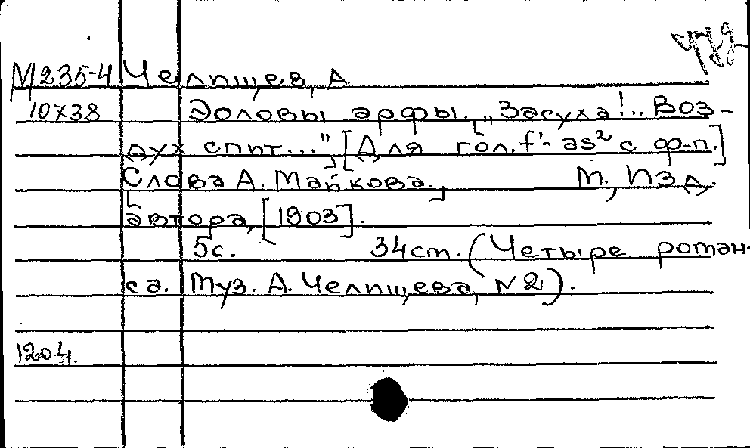 М235-4 Челищев, А
10738 Эоловы арфы. „Засуха!.. Воз-
дух спит...", [Для гол. f'- as² с ф-п.]
Слова А. Майкова. М., Изд.
автора, [1903].
5с. 34см. (Четыре роман-
са. Муз. А. Челищева, №2).
1204.